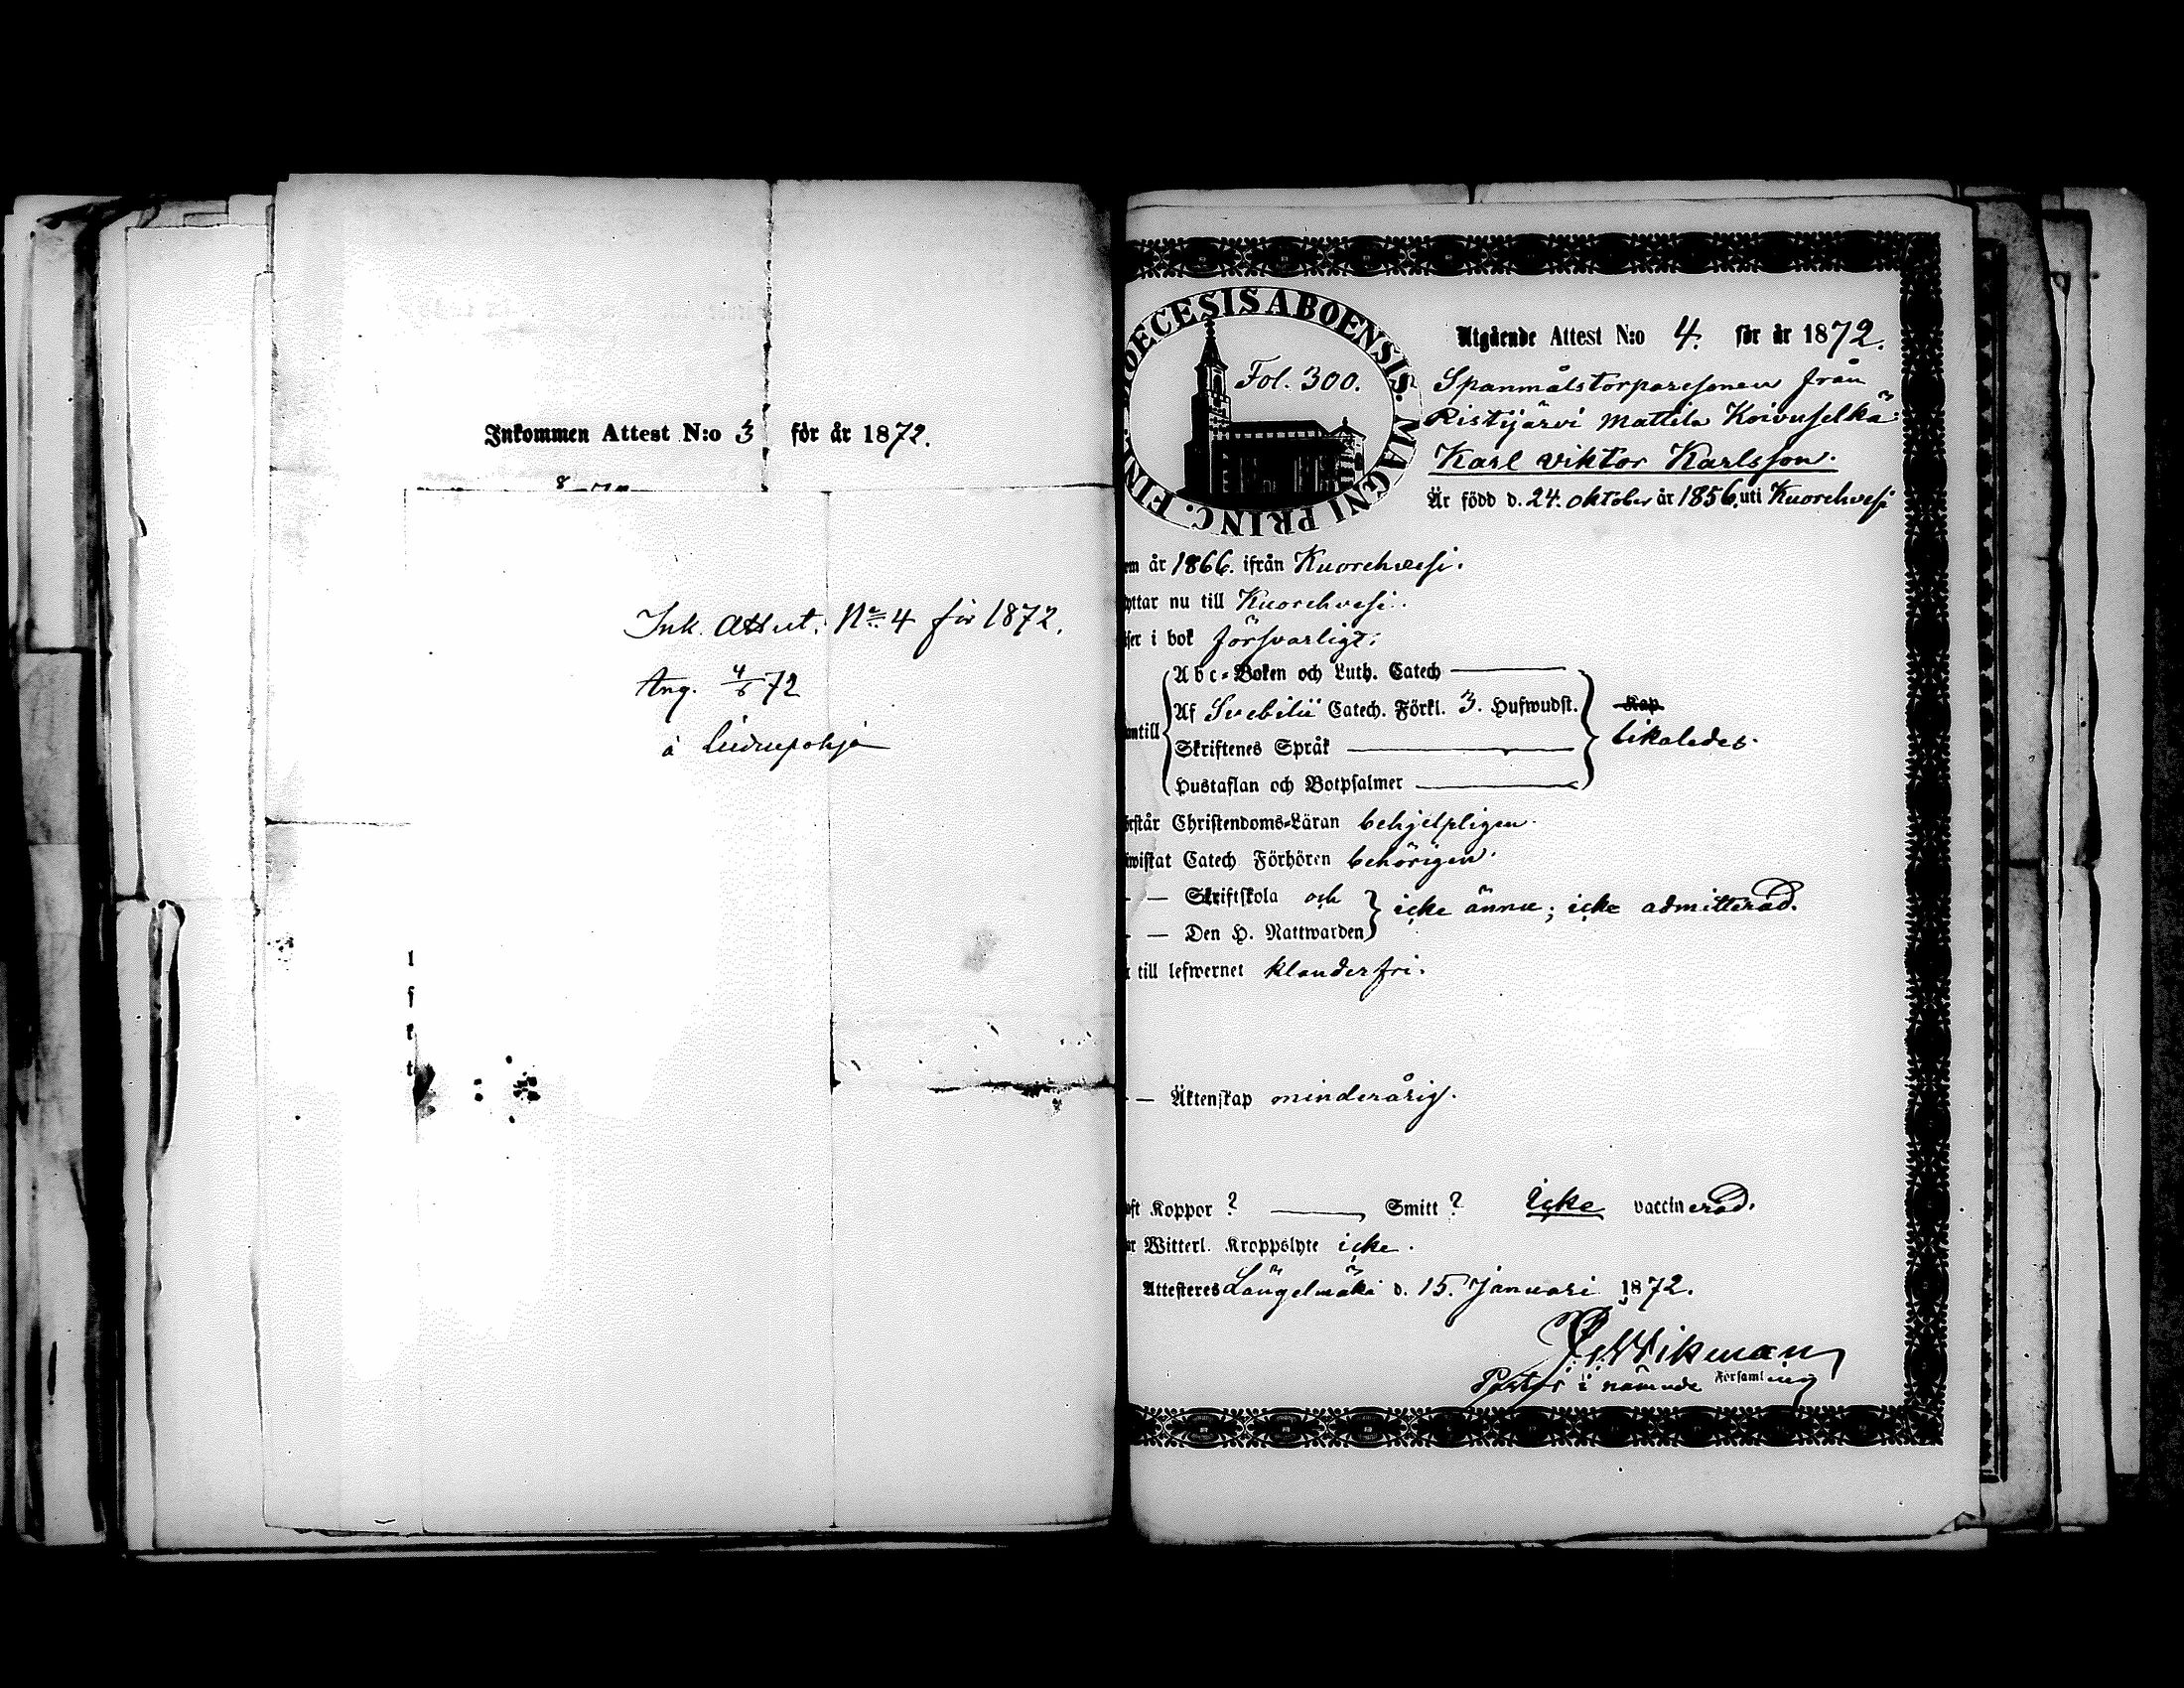 Inkommen Attest N:o 3 för år 1872.
Ink. Attest. No 4 för 1872.
Ang. 4/6 72
à
l
f
k
t
DIOECESIS ABOENSIS. MAGNI PRINC. FINL.
Fol. 300.
Utgående Attest N:o 4. för år 1872.
Spanmålstorparesonen från
Ristijärvi Mattila Koivuselkä:
Karl Viktor Karlsson.
Är född d. 24. Oktober år 1856. uti Kuorehvesi
om år 1866. ifrån Kuorehvesi.
yttar nu till Kuorehvesi.
äser i bok försvarligt;
Abc-Boken och Luth. Catech
antill Af Svebilii Catech. Förkl. 3. Hufwudst. Kap. likaledes.
Skriftenes Språk
Hustaflan och Botpsalmer
örstår Christendoms-Läran behjelpligen.
iwistat Catech Förhören behörigen.
— — Skriftskola och icke ännu; icke admitterad.
— — Den H. Nattwarden
t till lefwernet klanderfri.
— — Äktenskap minderårig.
aft Koppor? Smitt? Icke vaccinerad.
ar Witterl. Kroppslyte icke.
Attesteres Längelmäki d. 15. Januari 1872.
Wikman
Pastor i nämnde Församling